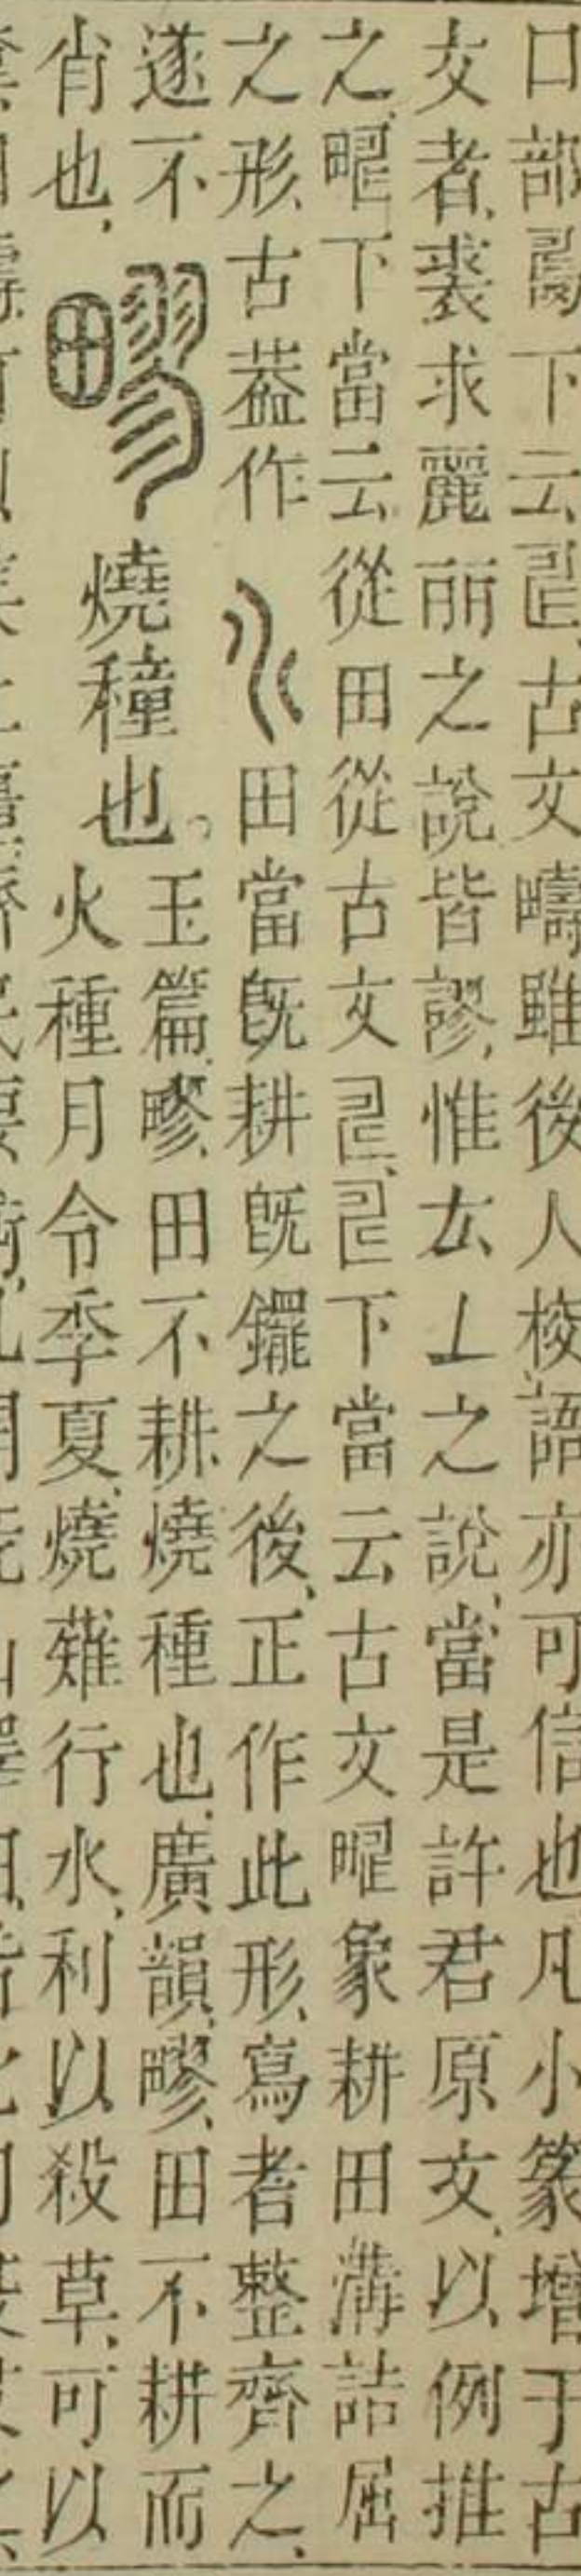 口部𠷎下云𠃬古文疇雖後人校語亦可信也凡小篆增于古
文者裘求麗丽之說皆謬惟厷𠃋之說當是許君原文以例推
之㽬下當云從田從古文𠃬𠃬下當云古文㽬象耕田溝詰屈
之形古葢作田當旣耕旣䥯之後正作此形寫者整齊之
遂不
肖也
疁
燒穜也。
玉篇疁田不耕燒種也廣韻疁田不耕而
火種月令季夏燒薙行水利以殺草可以